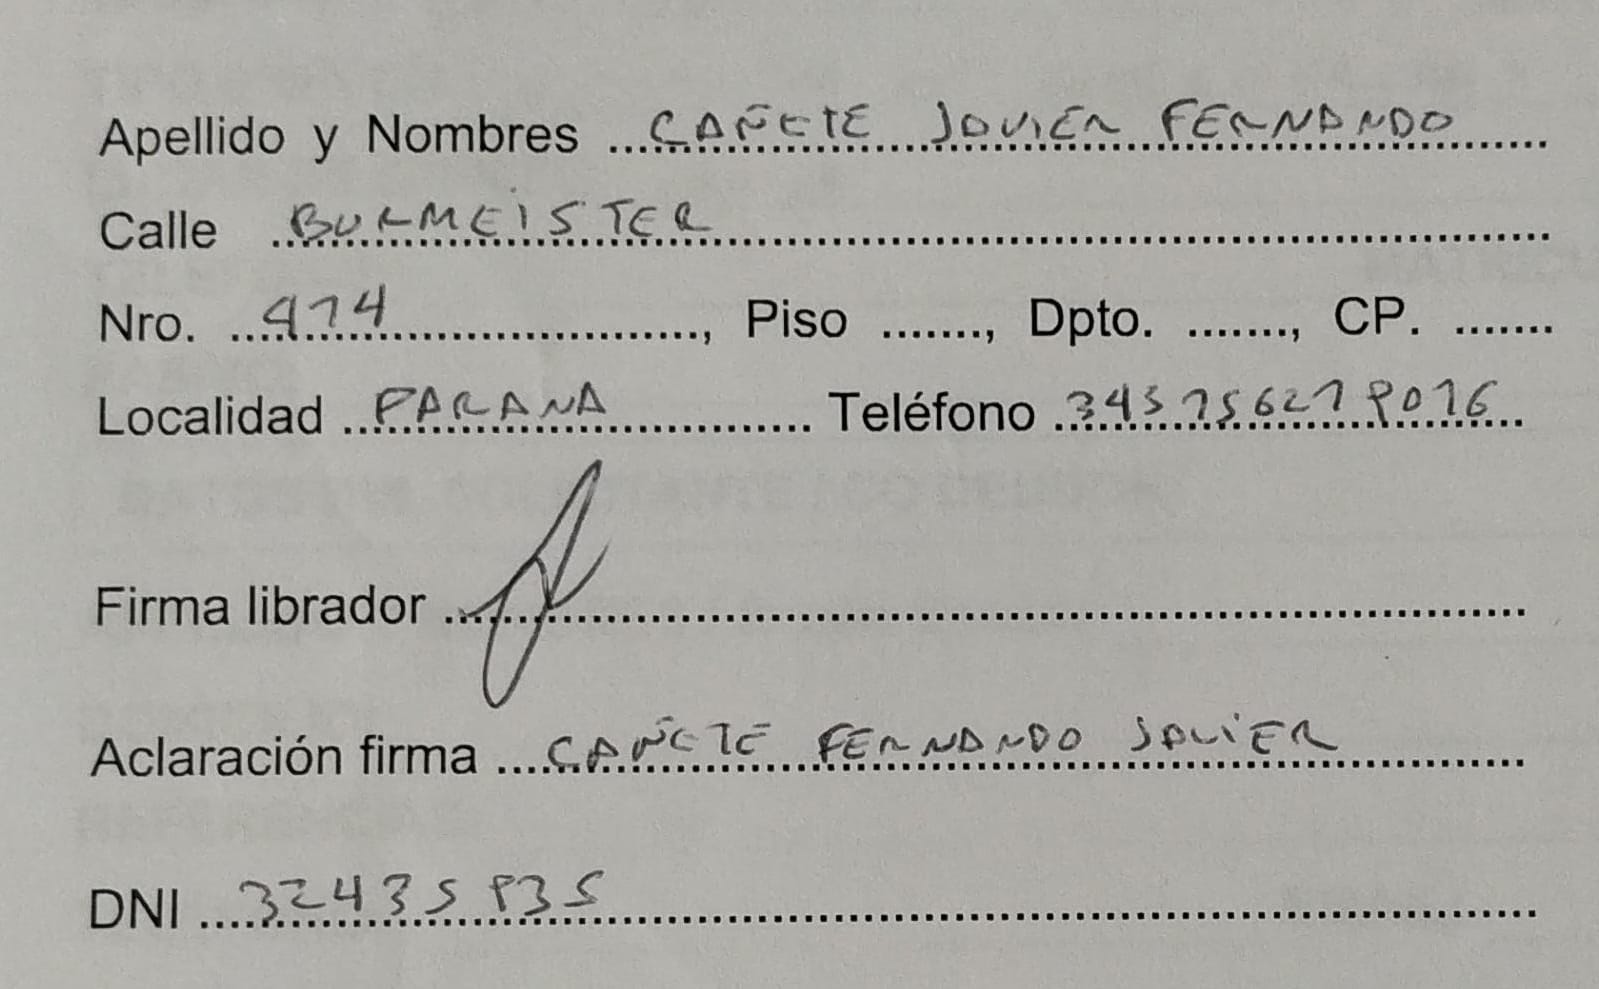 Apellido y Nombres CAÑETE JAVIER FERNANDO
Calle BURMEISTER
Nro. 414, Piso ......., Dpto. ......., CP. .......
Localidad PARANA Teléfono
Firma librador
Aclaración firma CAÑETE FERNANDO JAVIER
DNI 32435835